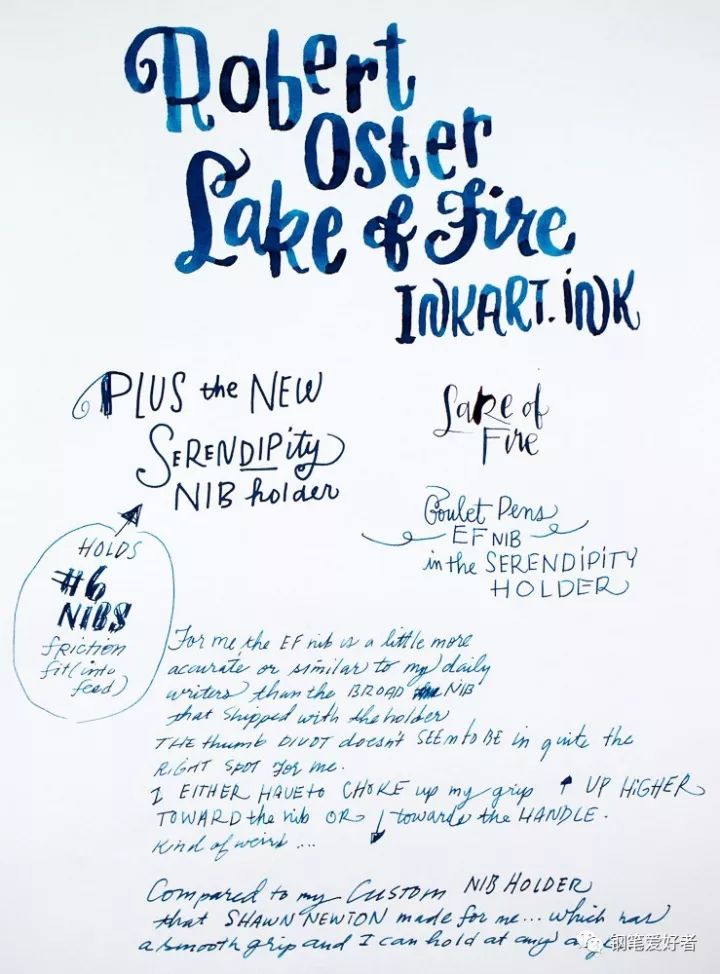 Robert
Oster
Lake of Fire
INKART.INK
PLUS the NEW
SERENDIPity
NIB holder
Lake of
Fire
Goulet Pens
EF NIB
in the SERENDIPITY
HOLDER
HOLDS
#6
NIBS
fRiction
fit (into
feed)
For me, the EF nib is a little more
accurate or similar to my daily
writers than the BROAD NIB
that shipped with the holder
THE thumb DIVOT doesn't SEEM to BE in quite the
RIGHT SPOT for me.
I EITHER HAVE to CHOKE up my grip ↑ UP HIGHER
TOWARD the nib OR ↓ towards the HANDLE.
Kind of weird ....
Compared to my CUSTOM NIB HOLDER
that SHAWN NEWTON made for me... which has
a smooth grip and I can hold at any
钢笔爱好者